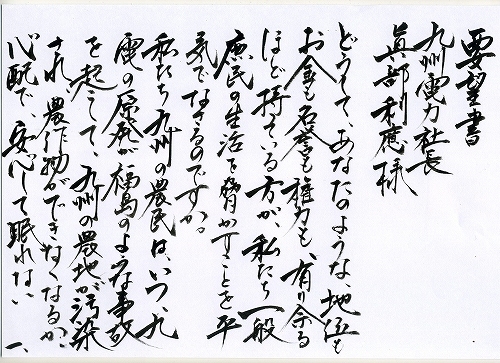 要望書
九州電力社長
眞部利應様
どうして、あなたのような、地位も
お金も名誉も権力も、有り余る
ほど持っている方が、私たち一般
庶民の生活を脅かすことを平
気でなさるのですか。
私たち九州の農民は、いつ、九
電の原発が福島のような事故
を起こして、九州の農地が汚染
され、農作物ができなくなるか、
心配で、安心して眠れない
一、